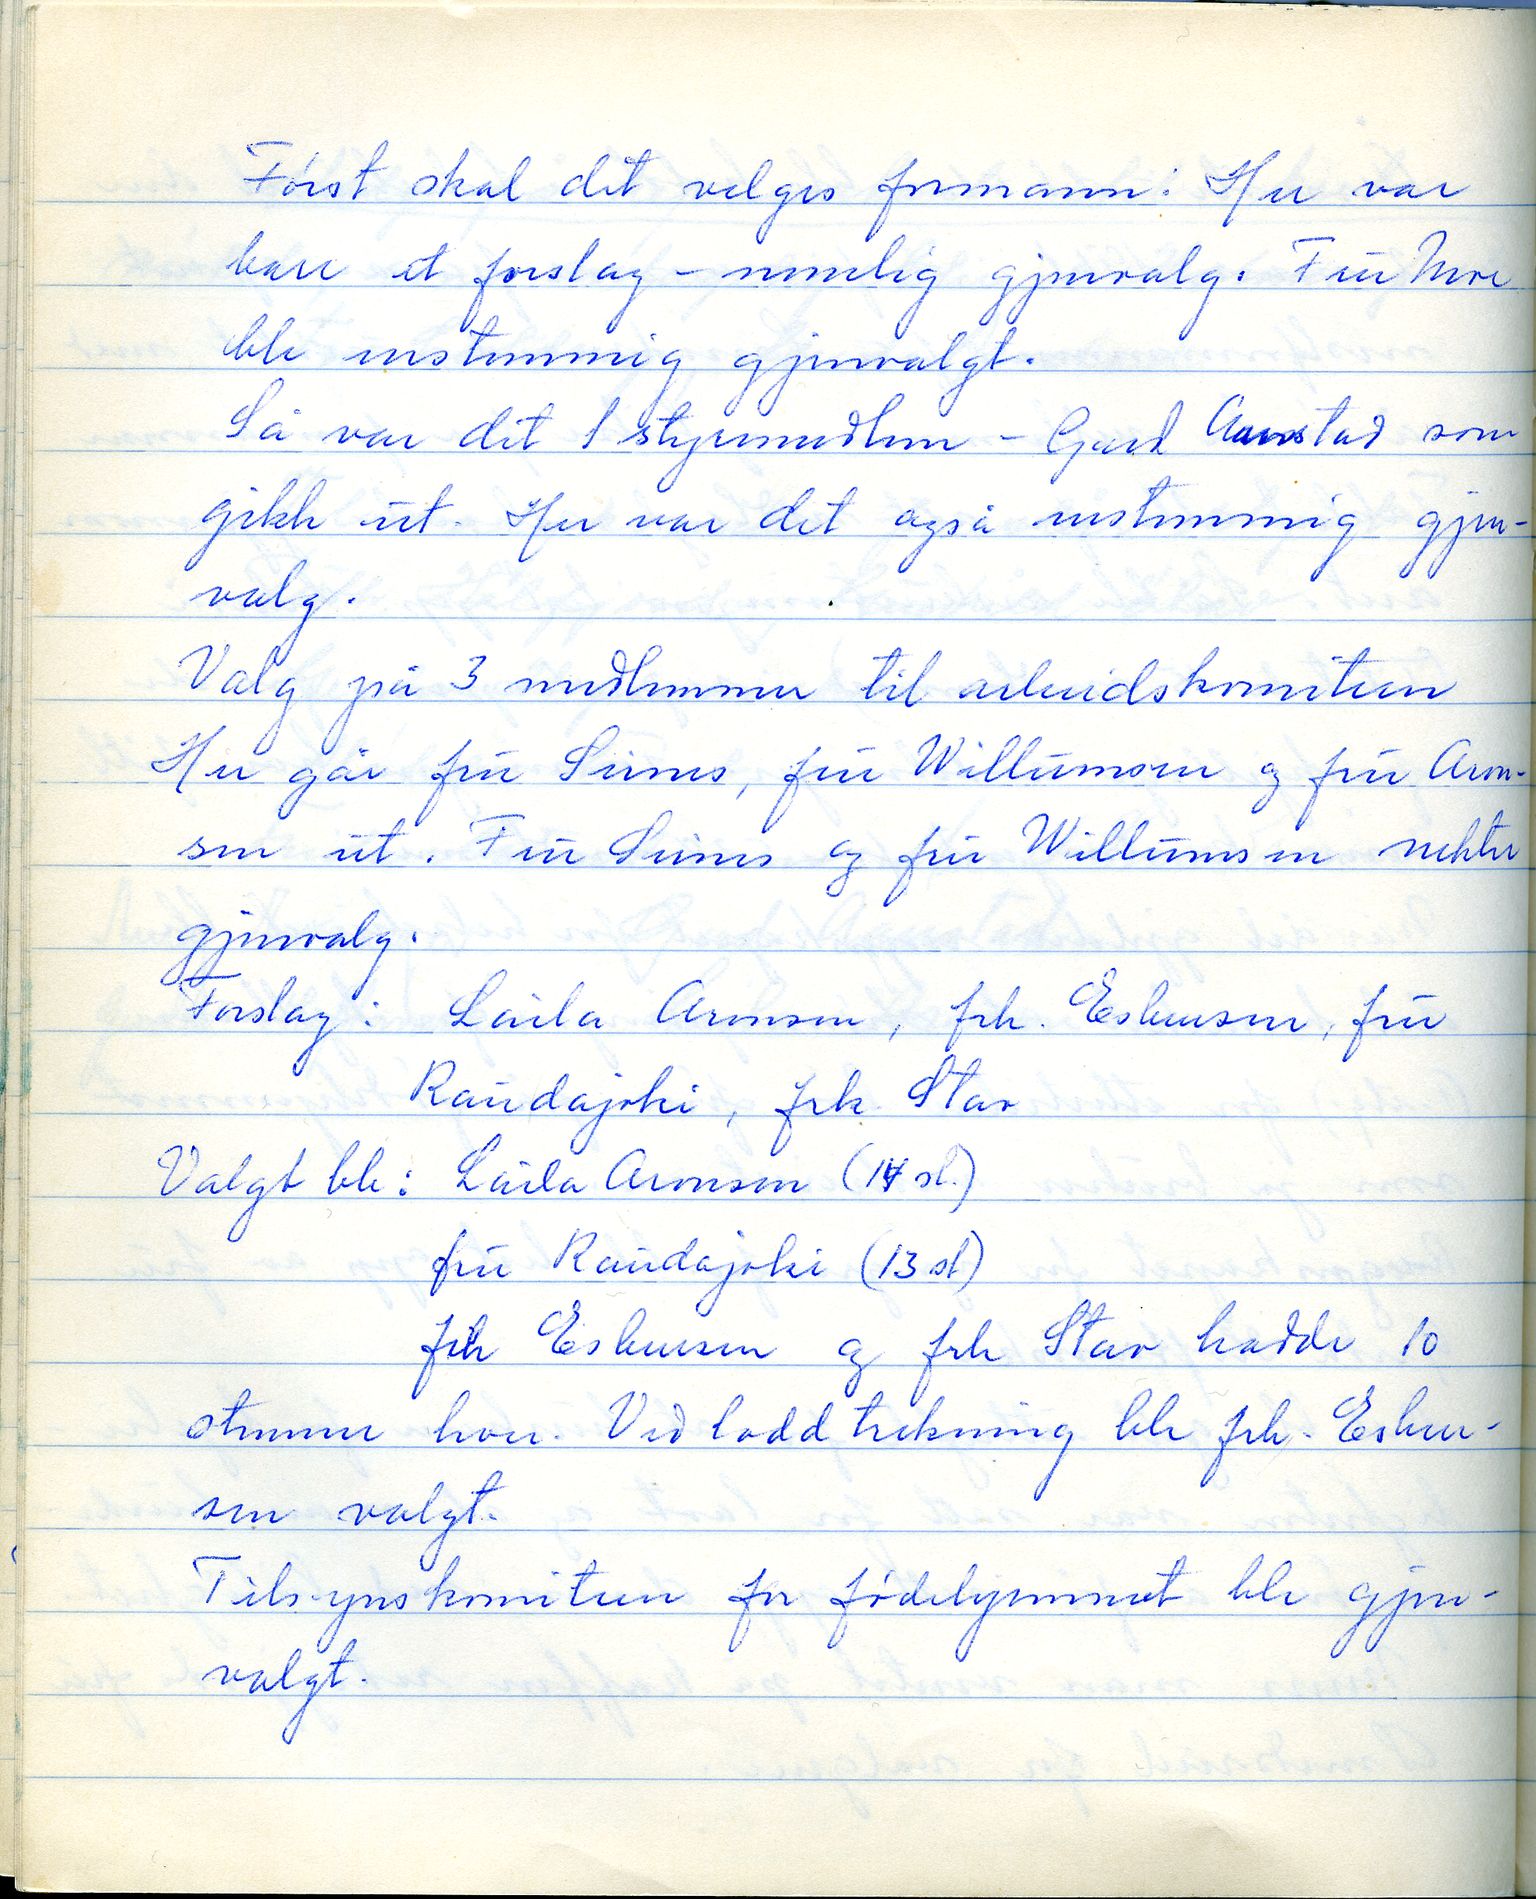 Først skal det velges formann: Her var
bare et forslag – nemlig gjenvalg. Fru Moe
ble enstemmig gjenvalgt.
Så var det 1 styremedlem – Gerd Aunstad som
gikk ut. Her var det også enstemmig gjen-
valg.
Valg på 3 medlemmer til arbeidskomiteen
Her går fru Siines, fru Willumsen og fru Aron-
sen ut. Fru Siines og fru Willumsen nekter
gjenvalg.
Forslag: Laila Aronsen, frk. Esbensen, fru
Raudajoki, frk. Stav
Valgt ble: Laila Aronsen (14 st.)
fru Raudajoki (13 st)
frk Esbensen og frk Stav hadde 10
stemmer hver. Ved loddtrekning ble frk. Esben-
sen valgt.
Tilsynskomiteen for fødehjemmet ble gjen-
valgt.